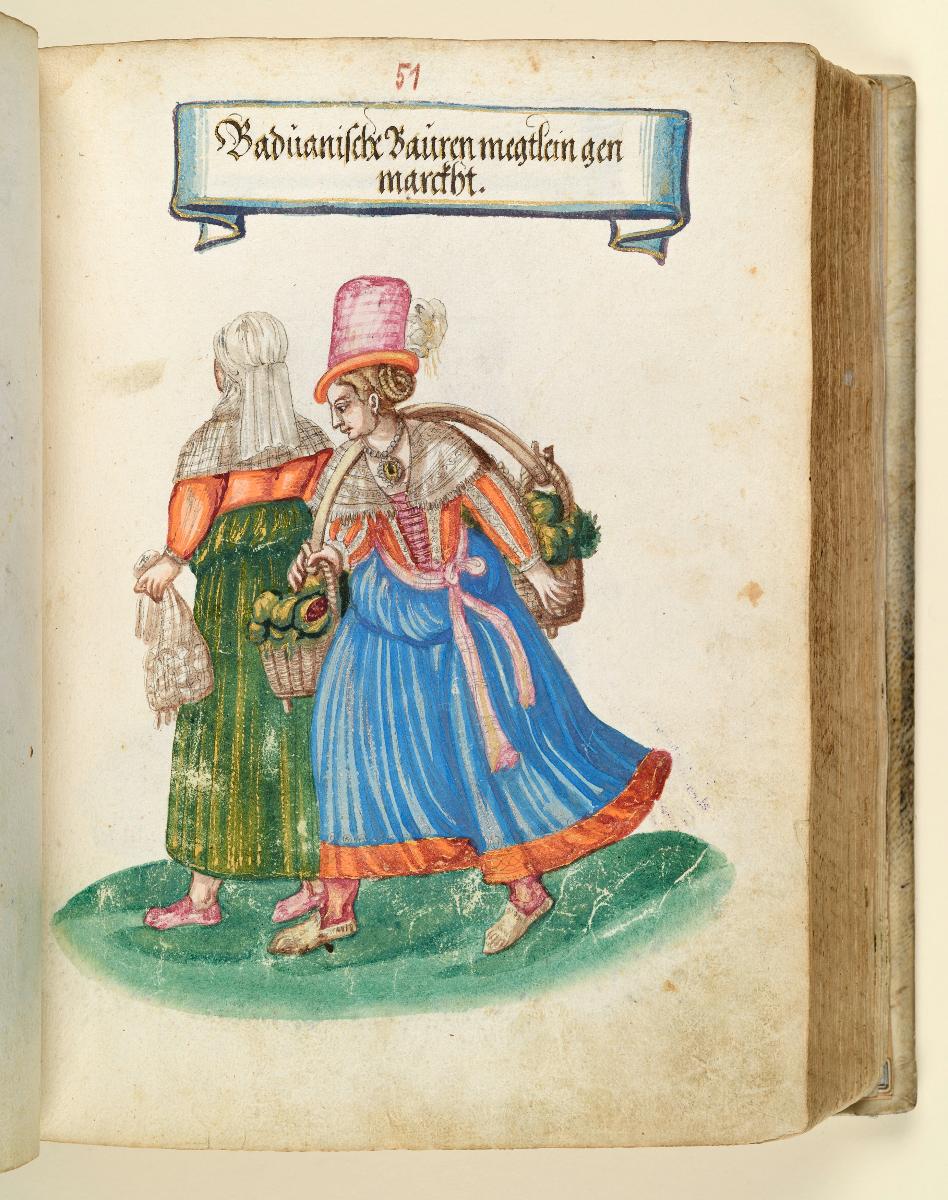 51
Badúanische Baúren megtlein gen
marckht.